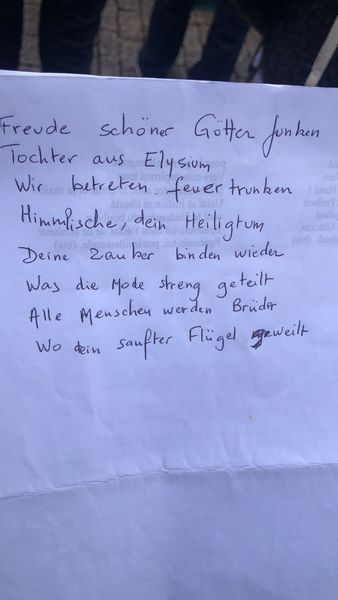 Freude schöner Götter funken
Tochter aus Elysium
Wir betreten feuertrunken
Himmlische, dein Heiligtum
Deine Zauber binden wieder
Was die Mode streng geteilt
Alle Menschen werden Brüder
Wo dein sanfter Flügel geweilt